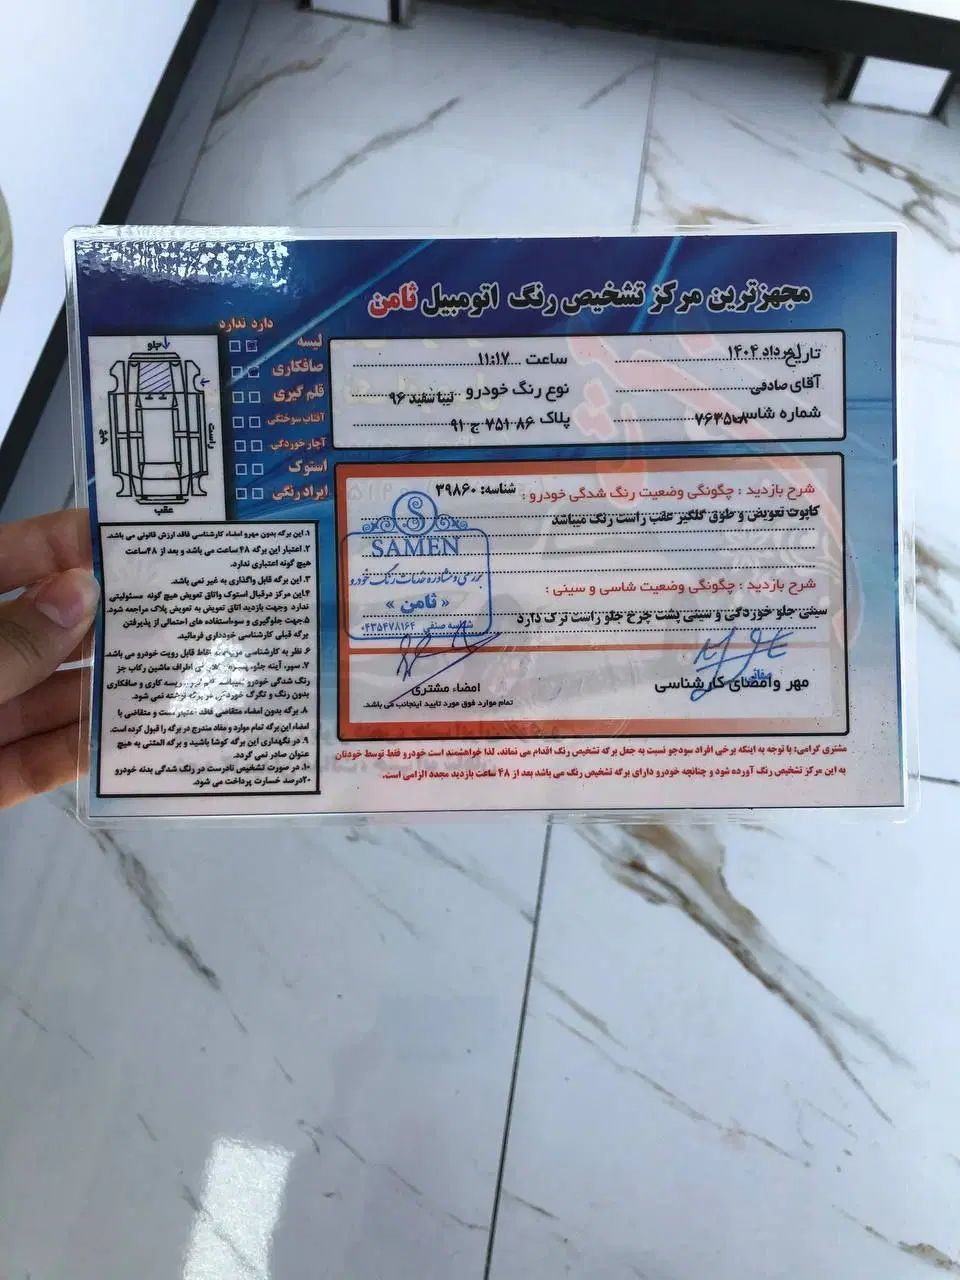 مجهزترین مرکز تشخیص رنگ اتومبیل ثامن
دارد ندارد
لیسه
صافکاری
قلم گیری
آفتاب سوختگی
آچار خوردگی
استوک
ایراد رنگی
جلو
راست
چپ
عقب
تاریخ خرداد ۱۴۰۴
ساعت ۱۱:۱۷
آقای صادقی
نوع رنگ خودرو تیبا سفید ۹۶
شماره شاسی
پلاک ۸۶ ۷۵۱ ج ۹۱
شرح بازدید : چگونگی وضعیت رنگ شدگی خودرو : شناسه: ۳۹۸۶۰
کاپوت تعویض و طوق گلگیر عقب راست رنگ میباشد
شرح بازدید : چگونگی وضعیت شاسی و سینی :
سینی جلو خوردگی و سینی پشت چرخ جلو راست ترک دارد
SAMEN
بررسی و مشاوره خدمات رنگ خودرو
« ثامن »
شناسه صنفی ۰۴۳۵۴۷۸۱۶۴
مهر وامضای کارشناسی
امضاء مشتری
تمام موارد فوق مورد تایید اینجانب می باشد.
۱. این برگه بدون مهرو امضاء کارشناسی فاقد ارزش قانونی می باشد.
۲. اعتبار این برگه ۴۸ ساعت می باشد و بعد از ۴۸ساعت
هیچ گونه اعتباری ندارد.
۳. این برگه قابل واگذاری به غیر نمی باشد.
۴.این مرکز درقبال استوک واتاق تعویض هیچ گونه مسئولیتی
ندارد وجهت بازدید اتاق تعویض به تعویض پلاک مراجعه شود.
۵.جهت جلوگیری و سوءاستفاده های احتمالی از پذیرفتن
برگه قبلی کارشناسی خودداری فرمائید.
۶. نظر به کارشناسی نقاط قابل رویت خودرو می باشد.
۷. سپر، آینه جلو، اطراف ماشین رکاب جز
رنگ شدگی خودرو لیسه کاری و صافکاری
بدون رنگ و تگرگ خوردگی در برگه نوشته نمی شود.
۸. برگه بدون امضاء متقاضی فاقد اعتبار است و متقاضی با
امضاء این برگه تمام موارد و مفاد مندرج در برگه را قبول کرده است.
۹. در نگهداری این برگه کوشا باشید و برگه المثنی به هیچ
عنوان صادر نمی گردد.
۱۰. در صورت تشخیص نادرست در رنگ شدگی بدنه خودرو
۲۰درصد خسارت پرداخت می شود.
مشتری گرامی: با توجه به اینکه برخی افراد سودجو نسبت به جعل برگه تشخیص رنگ اقدام می نماند، لذا خواهشمند است خودرو فقط توسط خودتان
به این مرکز تشخیص رنگ آورده شود و چنانچه خودرو دارای برگه تشخیص رنگ می باشد بعد از ۴۸ ساعت بازدید مجدد الزامی است.